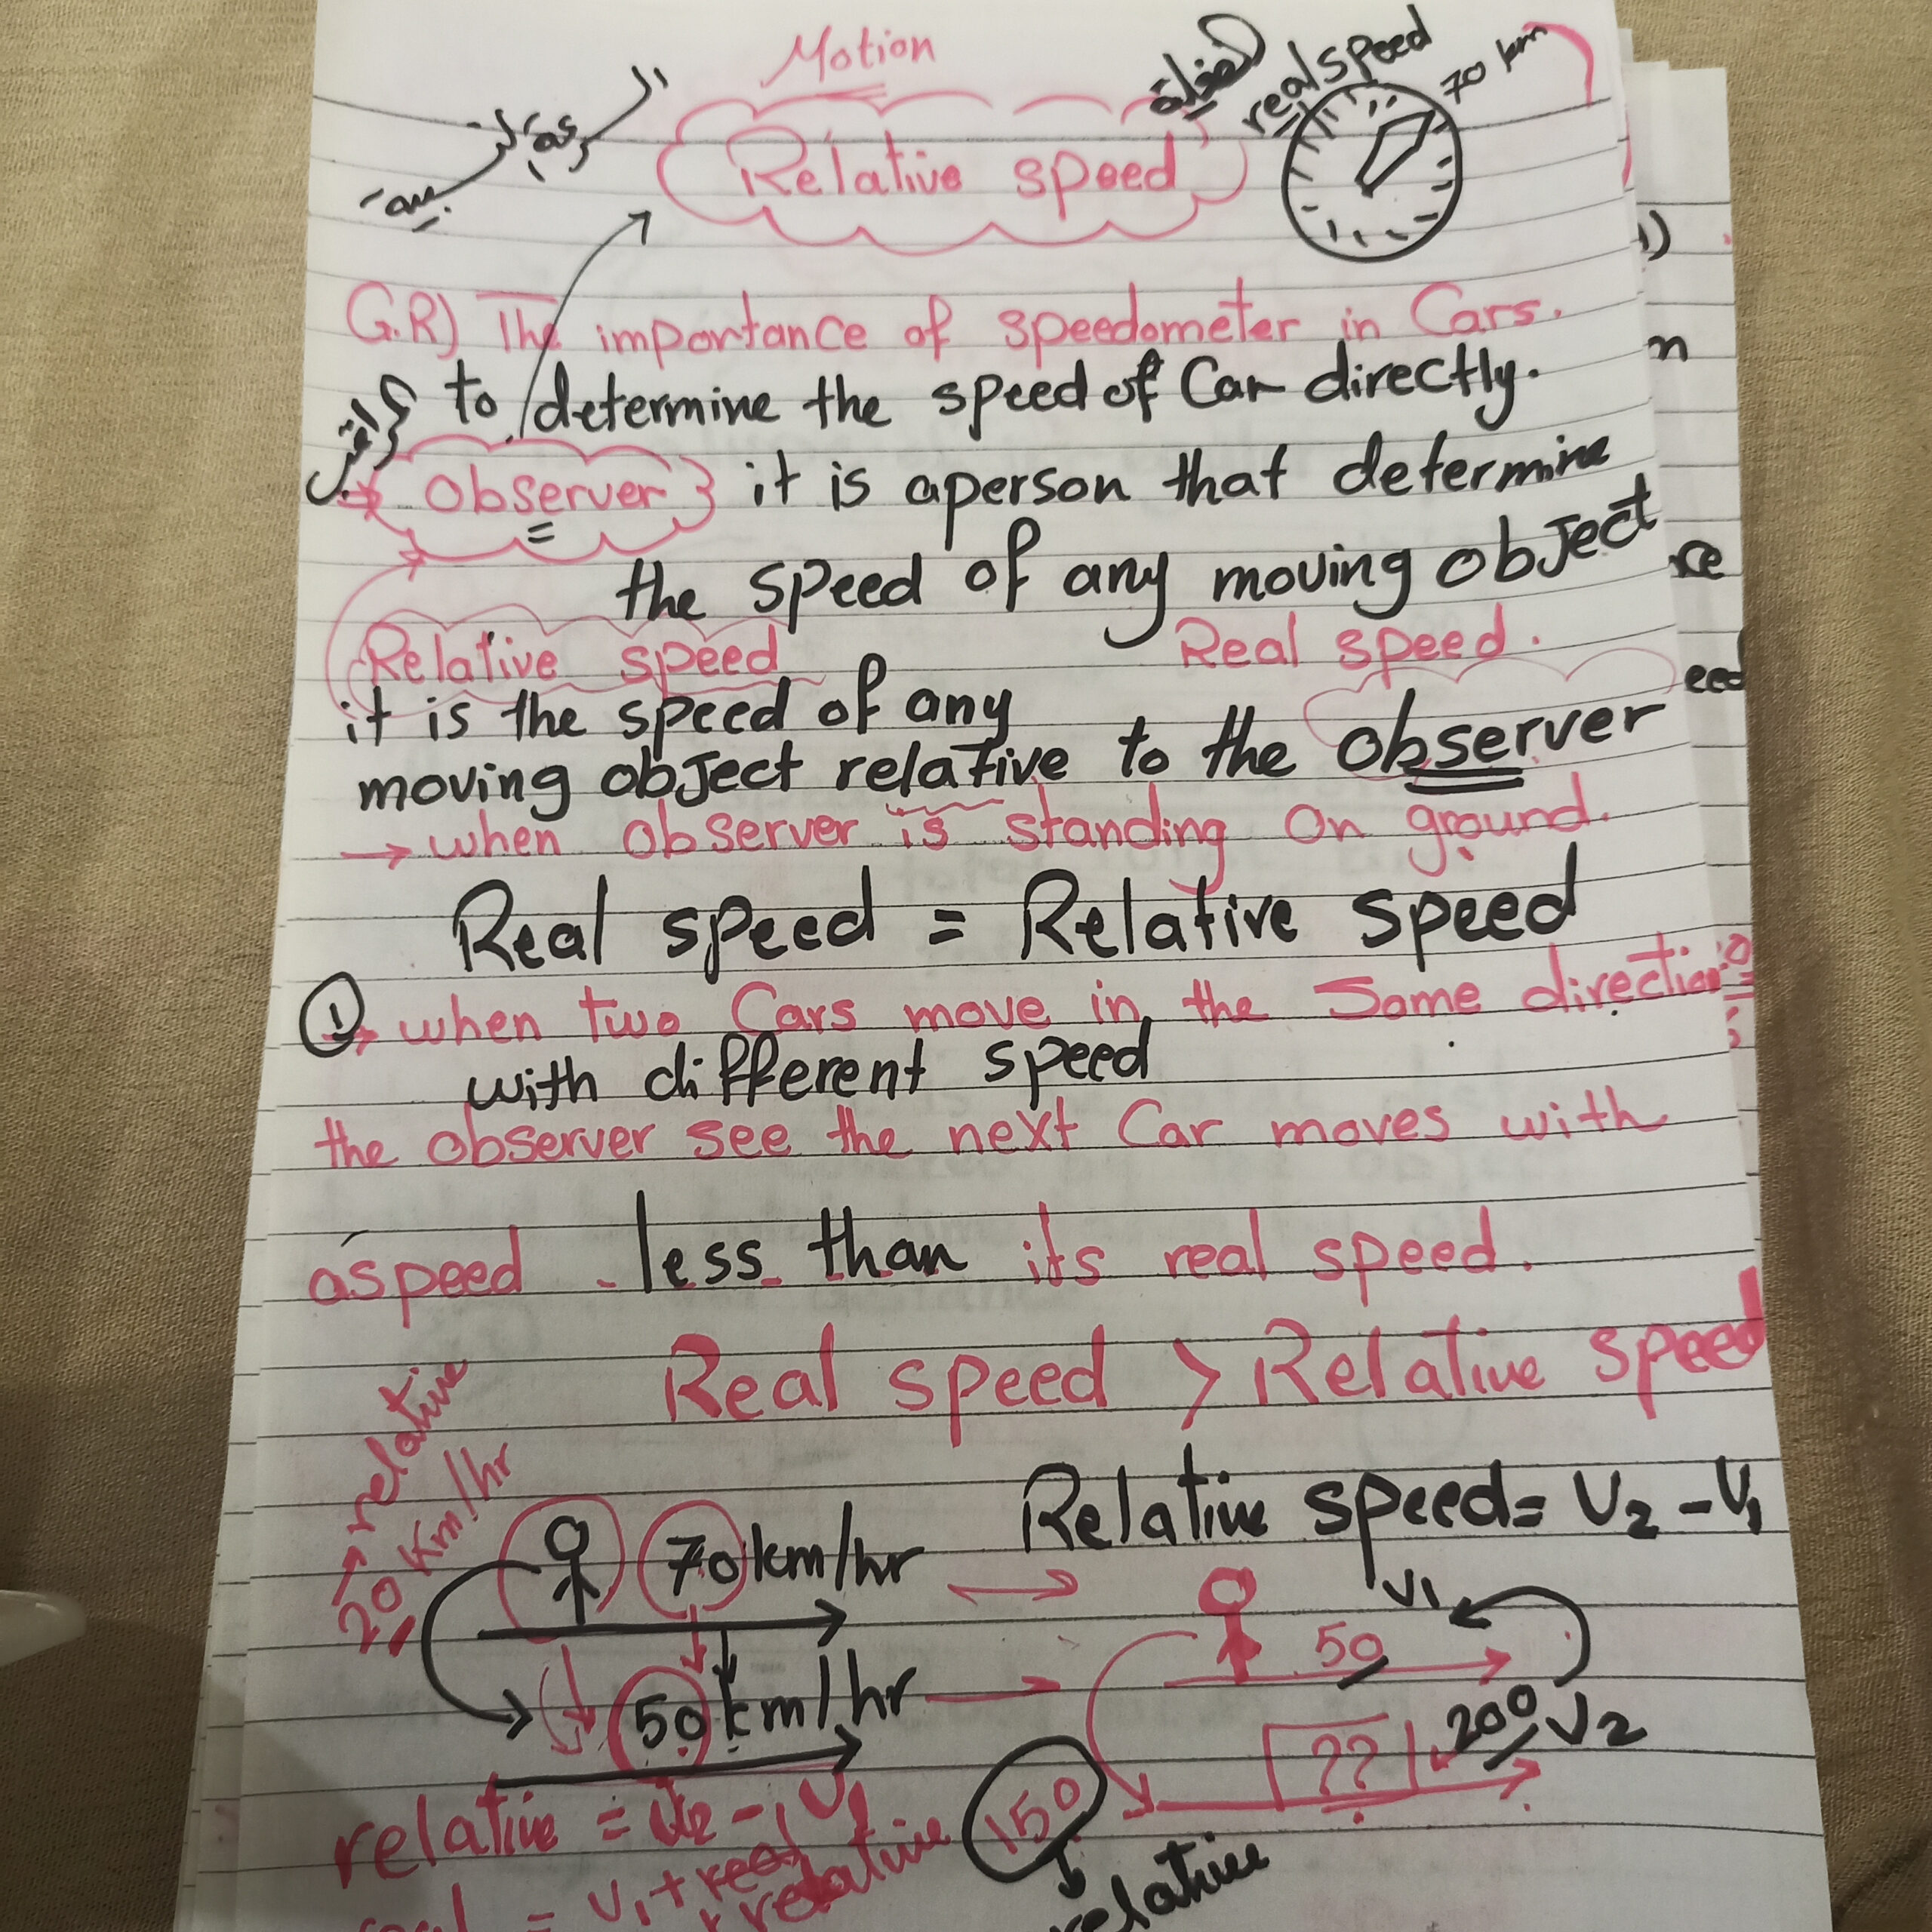 Motion
السرعة النسبية
Relative speed
real speed
70 km
G.R) The importance of speedometer in Cars.
to determine the speed of Car directly.
observer it is aperson that determine
the speed of any moving object
Relative speed
Real speed.
it is the speed of any
moving object relative to the observer
→ when observer is standing on ground.
Real speed = Relative speed
① → when two Cars move in the same direction
with different speed
the observer see the next Car moves with
aspeed less than its real speed.
Real speed > Relative speed
→ relative
20 Km/hr
70 km/hr →
50 km/hr →
Relative speed = V2 - V1
V1
50
200 V2
??
150
relative
relative = V2 - V1
= V1 + real
+ relative
n
eed